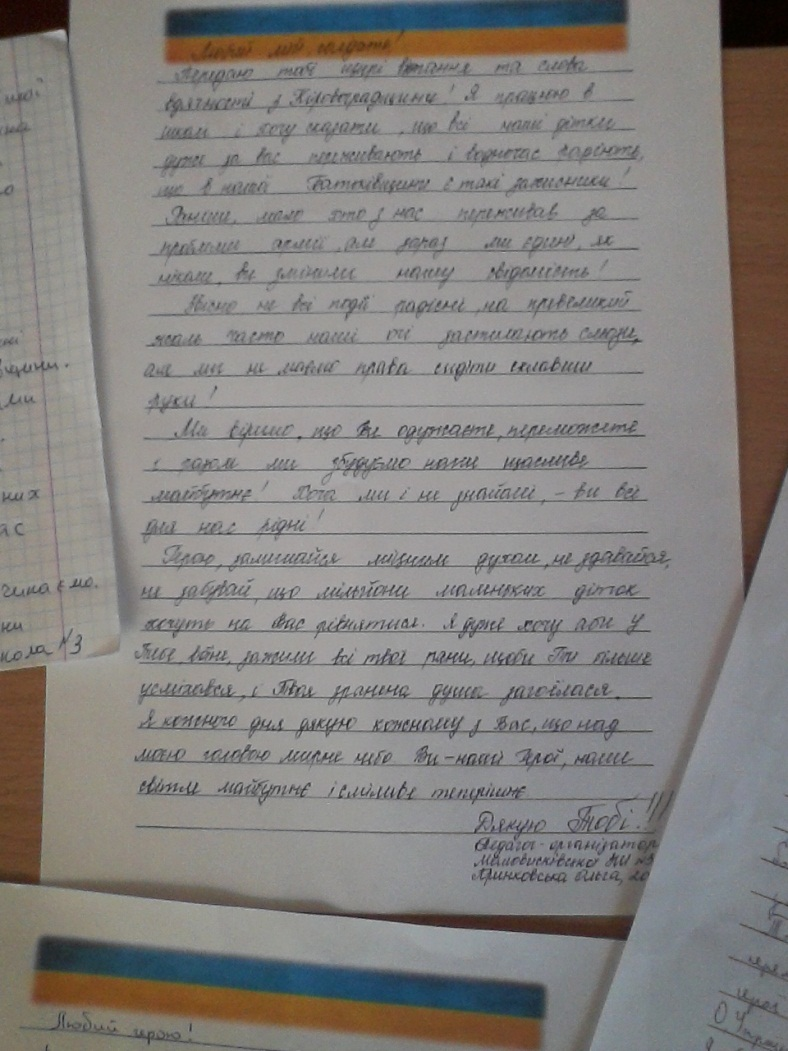 Любий мій солдате!
Передаю тобі щирі вітання та слова
вдячності з Кіровоградщини! Я працюю в
школі і хочу сказати, що всі наші дітки
дуже за вас переживають і водночас радіють,
що в нашій Батьківщини є такі захисники!
Раніше, мало хто з нас переживав за
проблеми армії, але зараз ми єдині, як
ніколи, ви змінили нашу свідомість!
Звісно не всі події радісні, на превеликий
жаль часто наші очі застилають сльози,
але ми не маємо права сидіти склавши
руки!
Ми віримо, що Ви одужаєте, переможете
і разом ми збудуємо наше щасливе
майбутнє! Хоча ми і не знайомі, - ви всі
для нас рідні!
Герою, залишайся міцним духом, не здавайся,
не забувай, що мільйони маленьких діток
хочуть на Вас рівнятися. Я дуже хочу аби у
Тебе все, зажили всі твої рани, щоби Ти більше
усміхався, і Твоя зранена душа загоїлася.
Я кожного дня дякую кожному з Вас, що над
моєю головою мирне небо Ви - наші Герої, наше
світле майбутнє і сміливе теперішнє.
Дякую Тобі!!!
Педагог-організатор
Маловисківської
Ольга, 20
Любий герою!
чинаємо.
ни
кола №3
них
 час